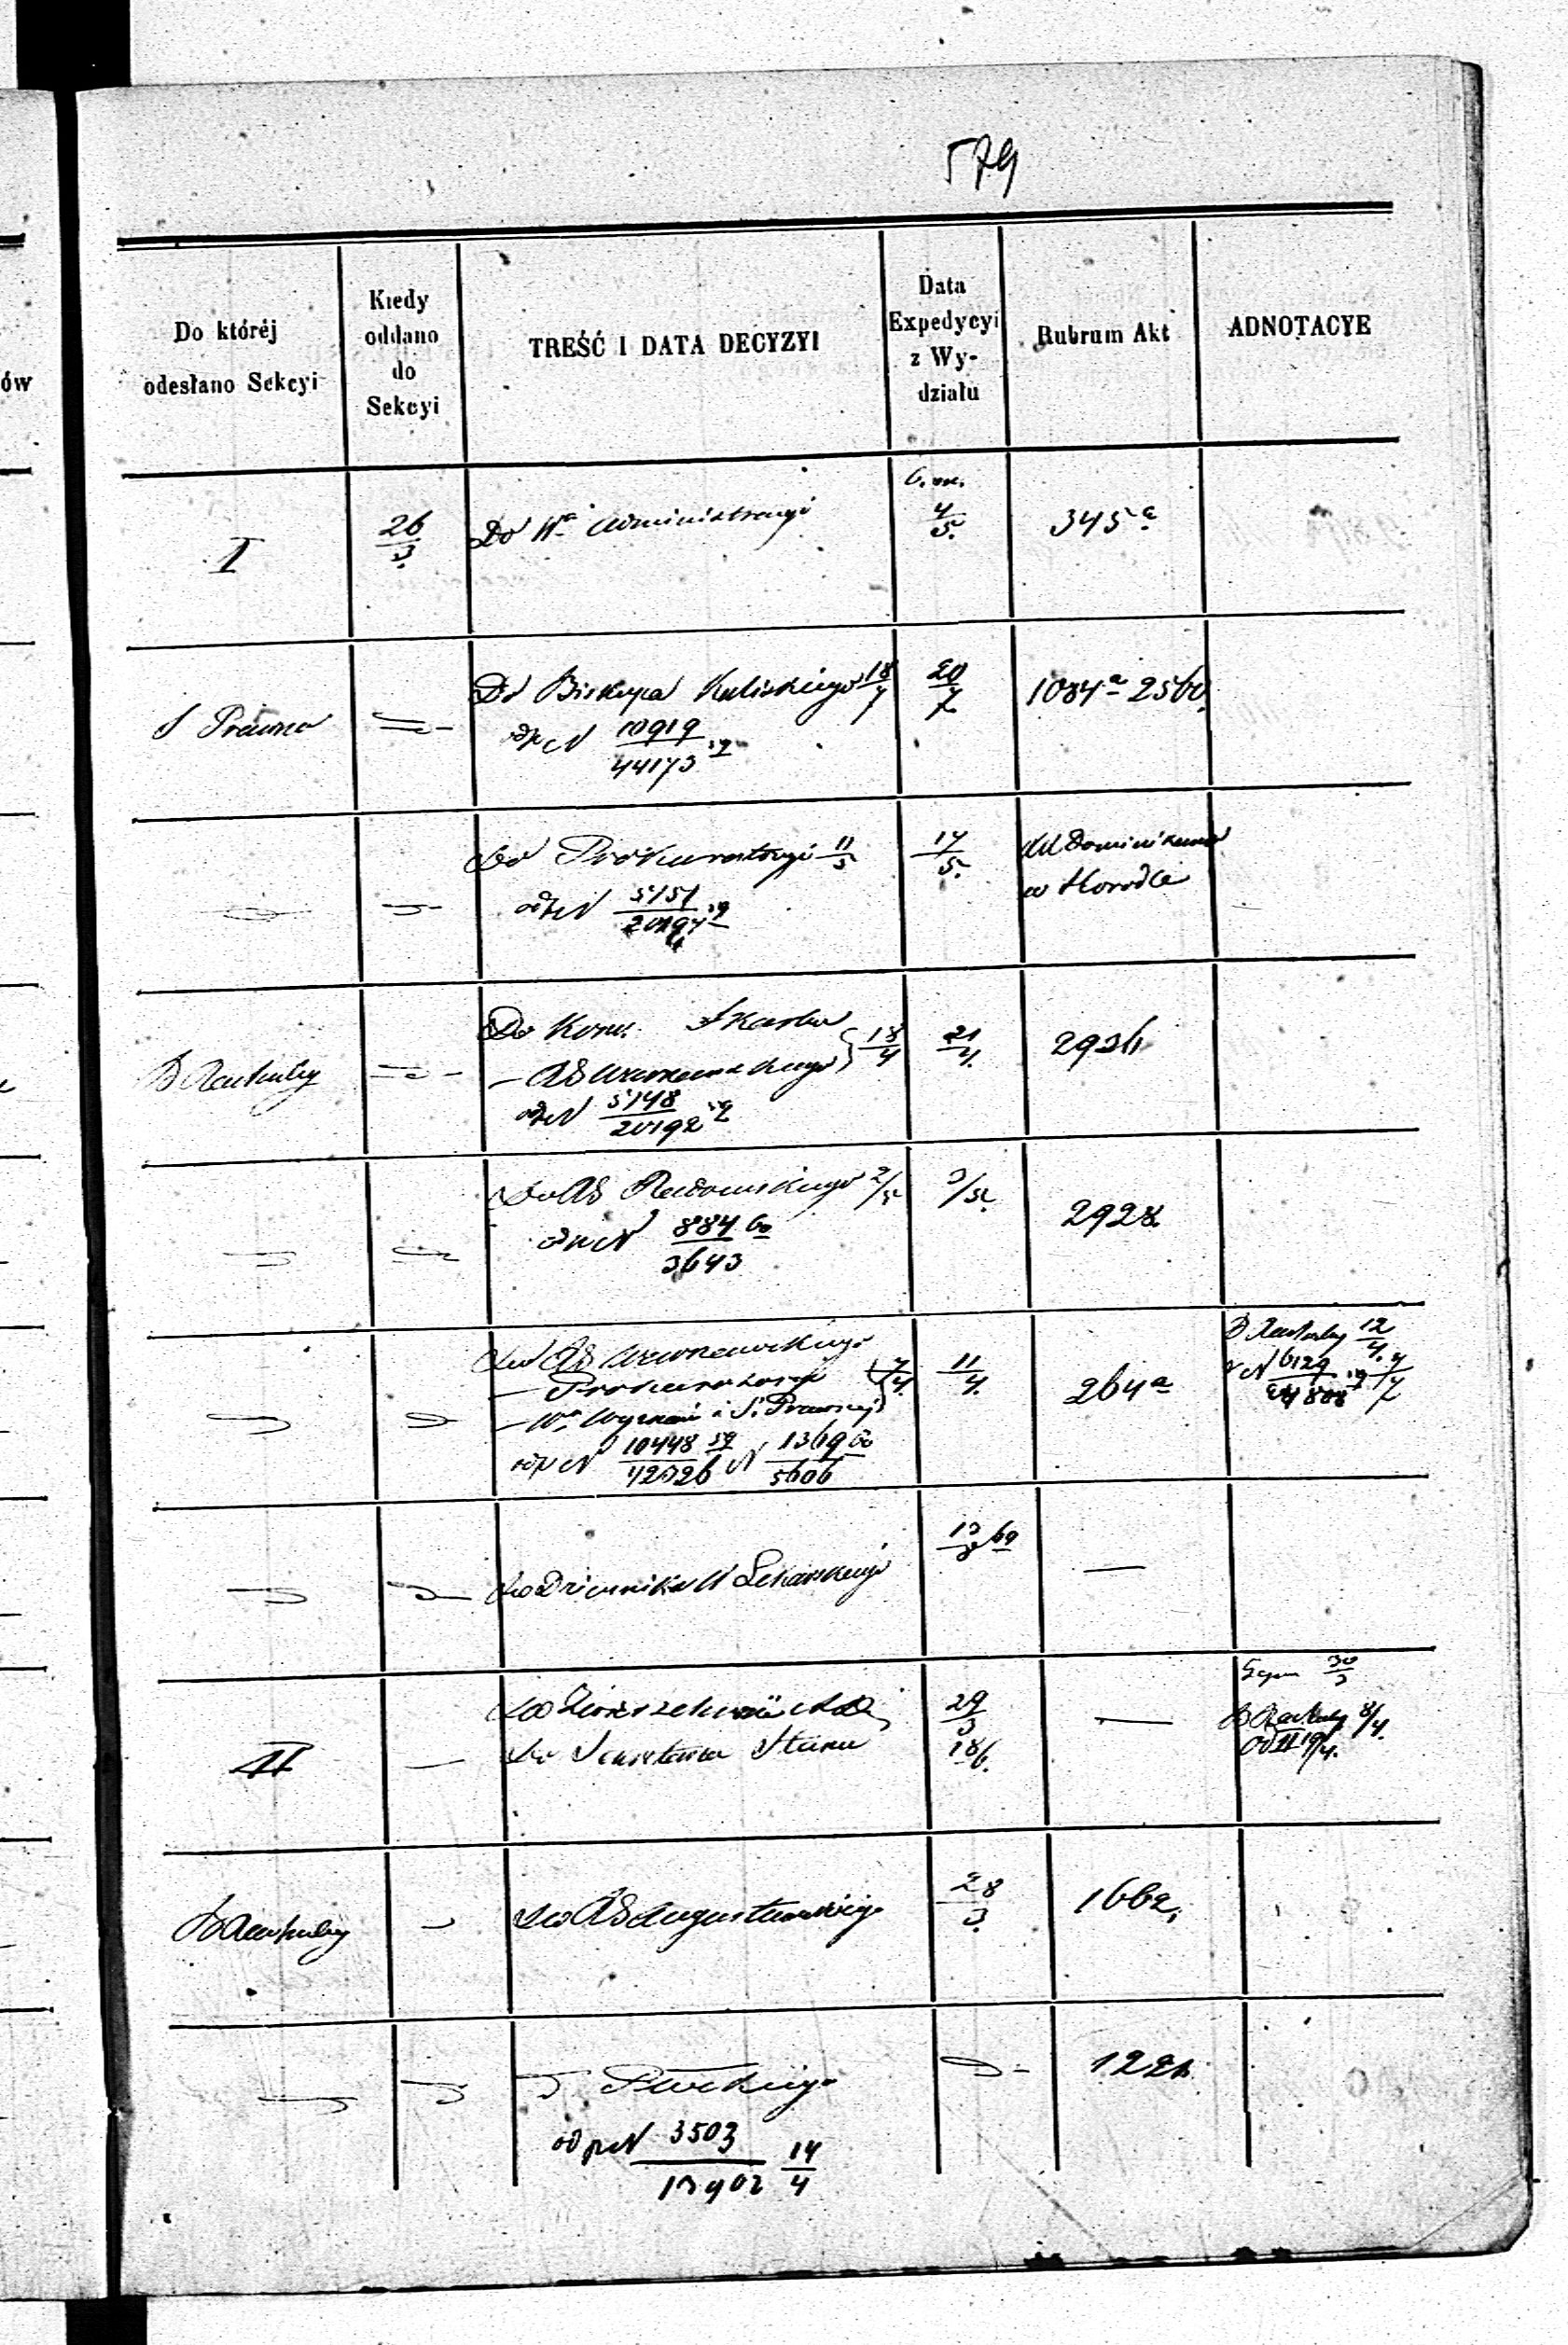 579
Do któréj
odesłano Sekcyi
Kiedy
oddano
do
Sekcyi
TREŚĆ I DATA DECYZYI
Data
Expedycyi
z Wy-
działu
Rubrum Akt
ADNOTACYE
ów
I
26/3
Do Wa Administracyi
4/5
345a
S Prawna
Do Biskupa Kaliskiego 18/7
odp N 10919/44173 59
20/7
1084a 2560
Do Prokuratoryi 11/5
odp N 5151
17/5
Dominikanów
w Horodle
B Rachuby
Do Kom. Skarbu
— RG Warszawskiego 18/4
odp N 5148/20192 59
21/4
293b
Do RG Radomskiego 2/5
odp N 884/3643 60
3/5
2928
Do RG Warszawskiego
— Prokuratoryi
— Wa Wyznań i S. Prawnej
odp N 10448/42326 59 N 1369/5606 60
11/4
264a
B Rachuby 12/4
N 6129
Do Dziennika W Lekarskiego
13/8 60
—
II
Do Sekretarza Stanu
29/3
18/6
—
30/3
B Rachuby 8/4
Od II 19/4
B Rachuby
Do RG Augustowskiego
28/3
1662
Płockiego
odp N 3503/13902 14/4
122b